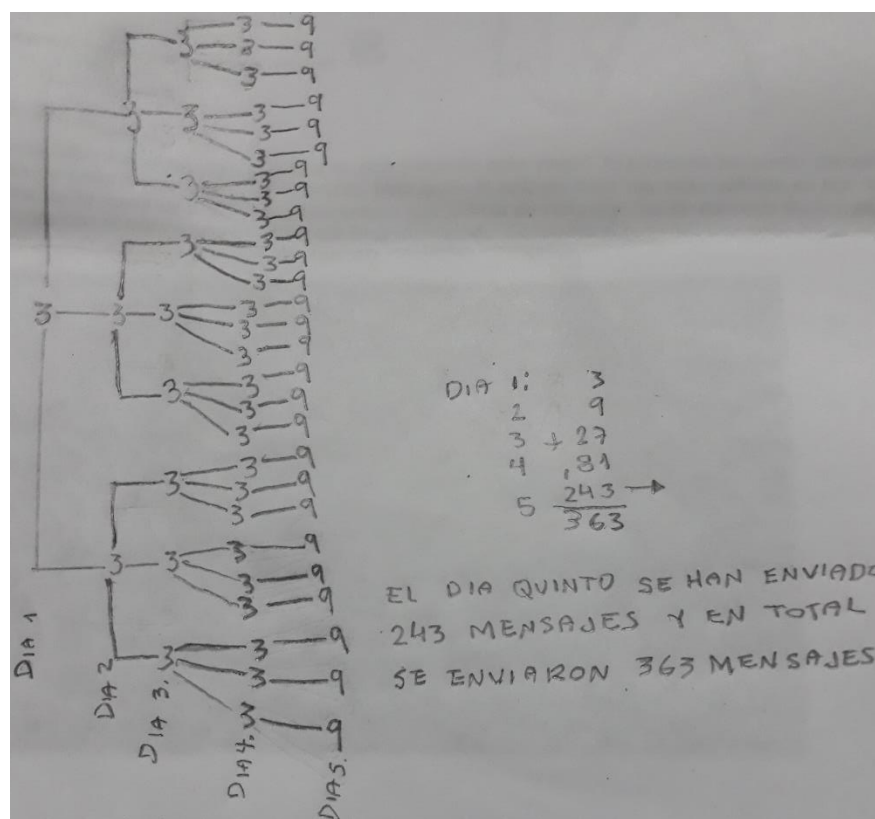 3 9
3 3 9
3 9
3 3 3 9
3 9
3 9
3 9
3 3 9
3 9
3 3 9
3 9
3 9
3 3 3 3 9
3 9
3 9
3 3 9
3 9
3 9
3 9
3 3 9
3 9
3 9
3 3 3 9
3 9
3 3 9
3 9
3 9
DIA 1
DIA 2
DIA 3.
DIA 4.
DIA 5.
DIA 1: 3
2 9
3 + 27
4 ,81
5 243 →
363
EL DIA QUINTO SE HAN ENVIADO
243 MENSAJES Y EN TOTAL
SE ENVIARON 363 MENSAJES